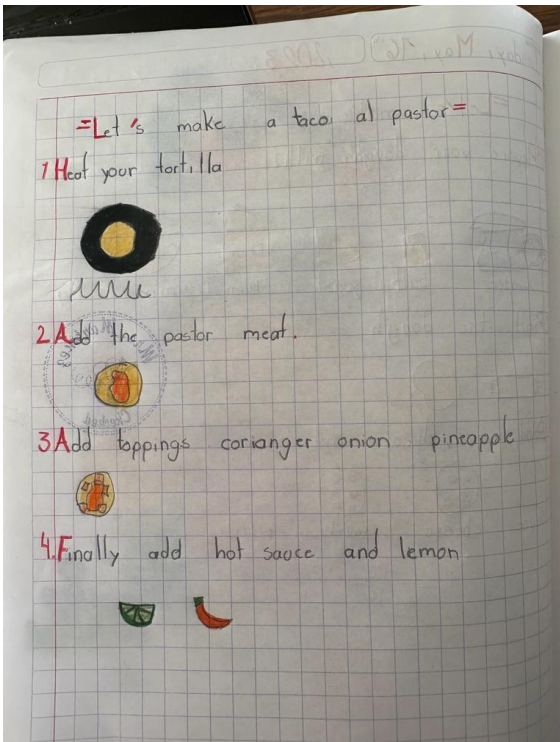 =Let's make a taco al pastor=
1 Heat your tortilla
2 Add the pastor meat.
3 Add toppings corianger onion pineapple
4. Finally add hot sauce and lemon